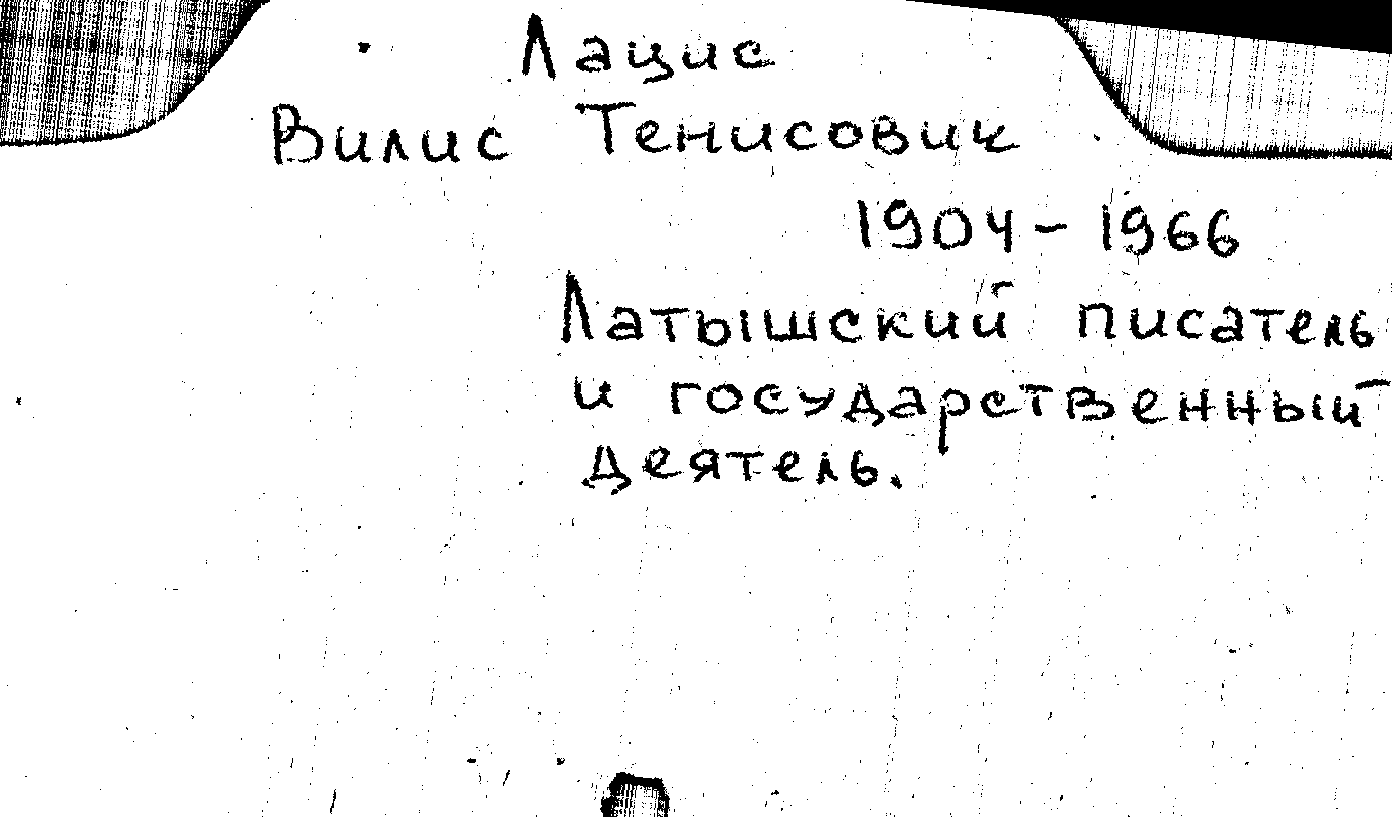 Лацис
Вилис Тенисович
1904-1966
Латышский писатель
и государственный
деятель.